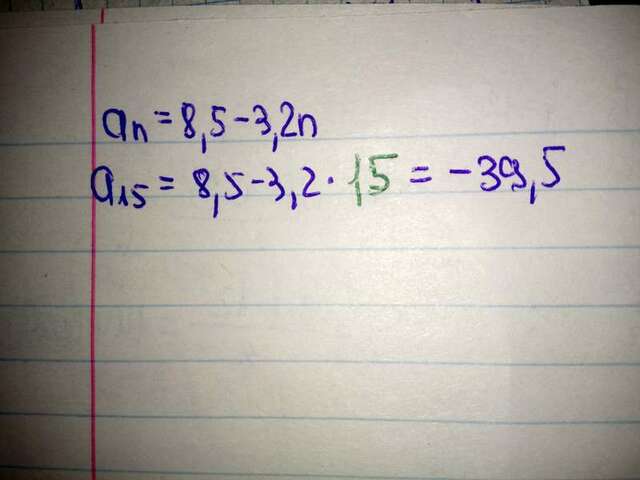 aₙ = 8,5 - 3,2n
a₁₅ = 8,5 - 3,2 · 15 = -39,5